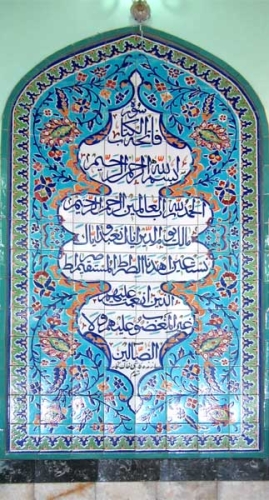 سورة
فاتحة الكتاب
بسم الله الرحمن الرحيم
الحمد لله رب العالمين الرحمن الرحيم
مالك يوم الدين اياك نعبد و اياك
نستعين اهدنا الصراط المستقيم صراط
الذين انعمت عليهم
غير المغضوب عليهم و لا
الضالين